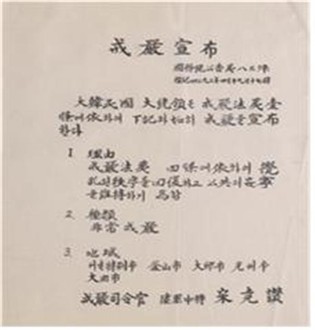 戒嚴宣布
國務院公告第八三號
檀紀四二九三年四月十九日
大韓民國 大統領은 戒嚴法第壹
條에 依하여 下記와 如히 戒嚴을 宣布
한다
1. 理由
戒嚴法第 四條에 依하여 攪
乱된 秩序를 回復하고 公共의 安寧
을 維持하기 爲함
2. 種類
非常戒嚴
3. 地域
서울特別市 釜山市 大邱市 光州市
大田市
戒嚴司令官 陸軍中將 宋堯讚